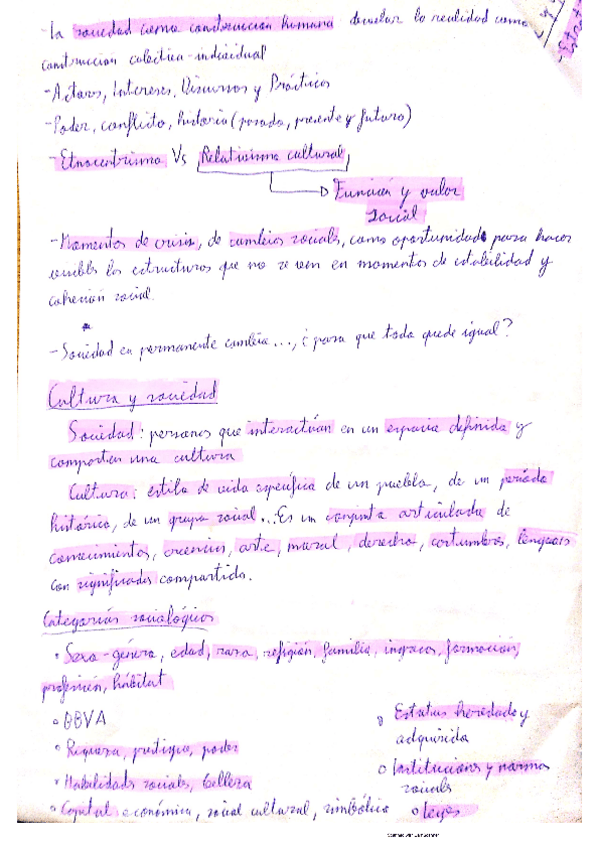 -La sociedad como construcción humana develar la realidad como
construcción colectiva-individual
-Actores, Intereses, Discursos y Prácticas
-Poder, conflicto, historia (pasado, presente y futuro)
-Etnocentrismo Vs Relativismo cultural
Función y valor
social
-Momentos de crisis, de cambios sociales, como oportunidad para hacer
visibles las estructuras que no se ven en momentos de estabilidad y
cohesión social.
-Sociedad en permanente cambio..., ¿para que todo quede igual?
Cultura y sociedad
Sociedad: personas que interactúan en un espacio definido y
comparten una cultura
Cultura: estilo de vida específica de un pueblo, de un periodo
histórico, de un grupo social...Es un conjunto articulado de
conocimientos, creencias, arte, moral, derecho, costumbres, lenguajes
con significados compartido.
Categorías sociológicas
• Sexo-género, edad, raza, religión, familia, ingresos, formación,
profesión, hábitat
o BBVA
o Riqueza, prestigio, poder
• Habilidades sociales, belleza
o Capital económico, social cultural, simbólico
o Estatus heredado y
adquirido
o Instituciones y normas
sociales
o leyes